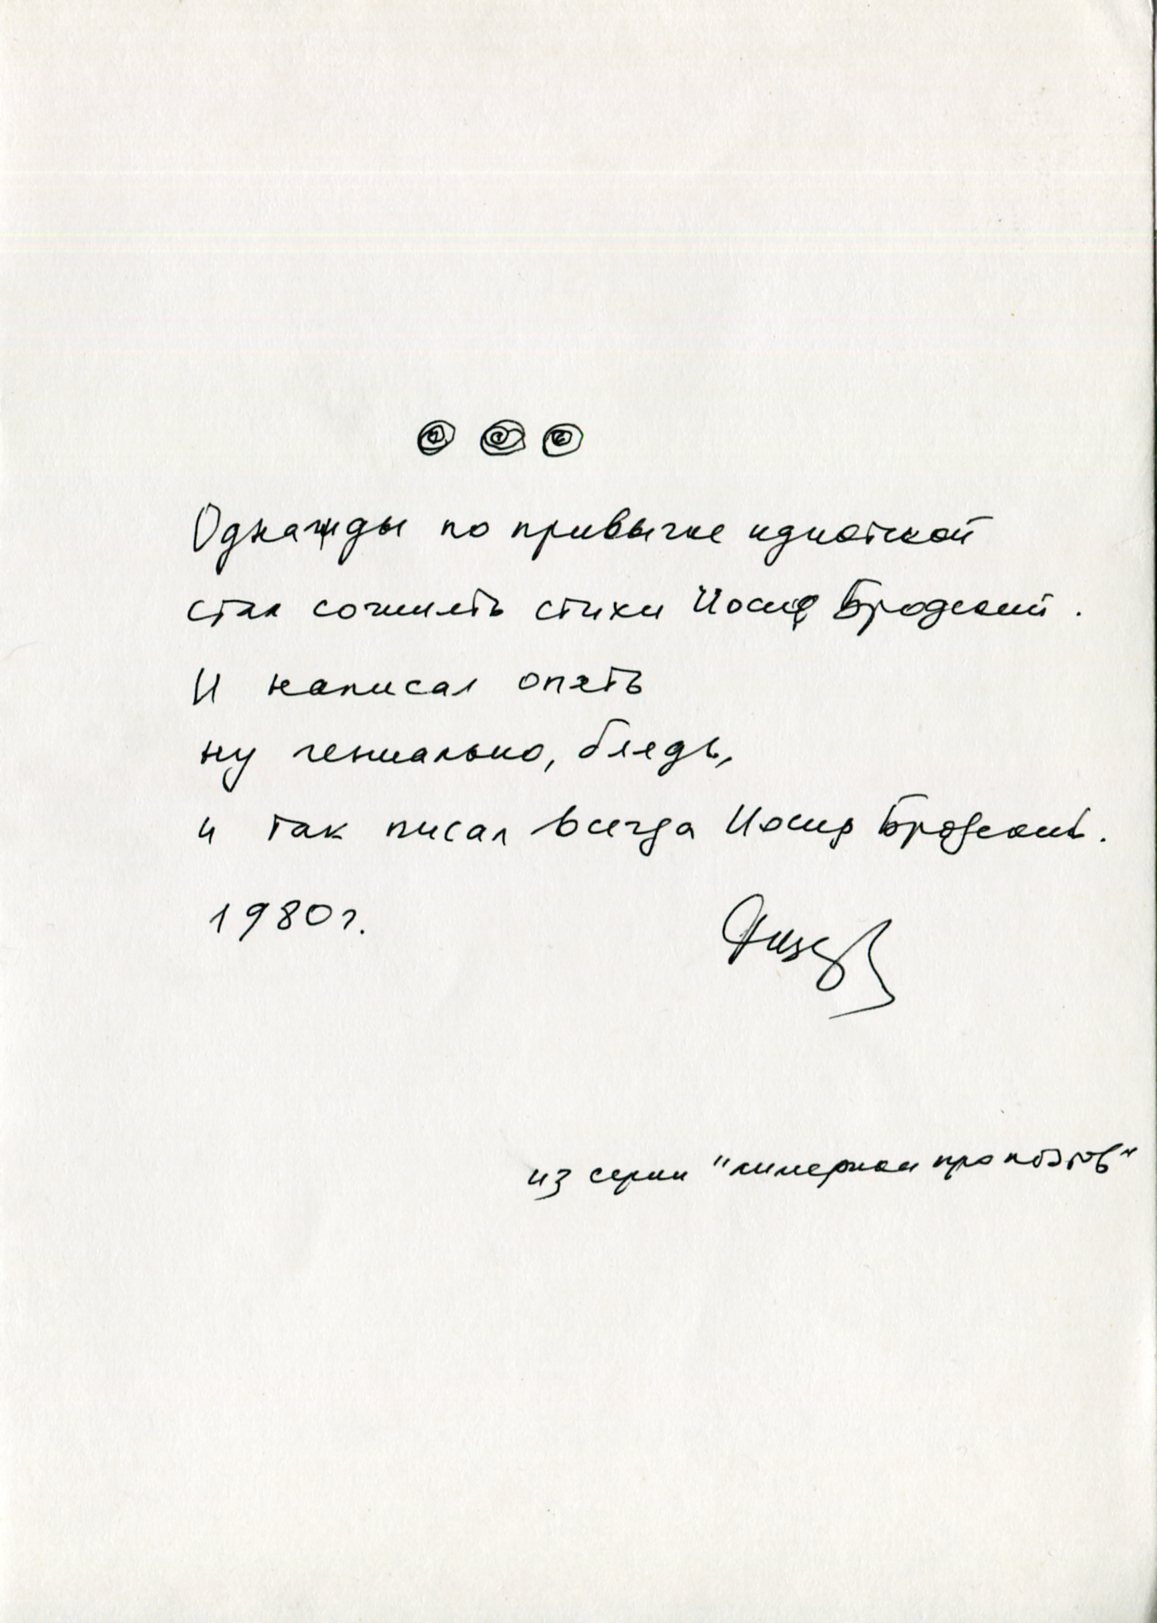 Однажды по привычке идиотской
стал сочинять стихи Иосиф Бродский.
И написал опять
ну гениально, блядь,
и так писал всегда Иосиф Бродский.
1980г.
из серии "лимерики про поэтов"